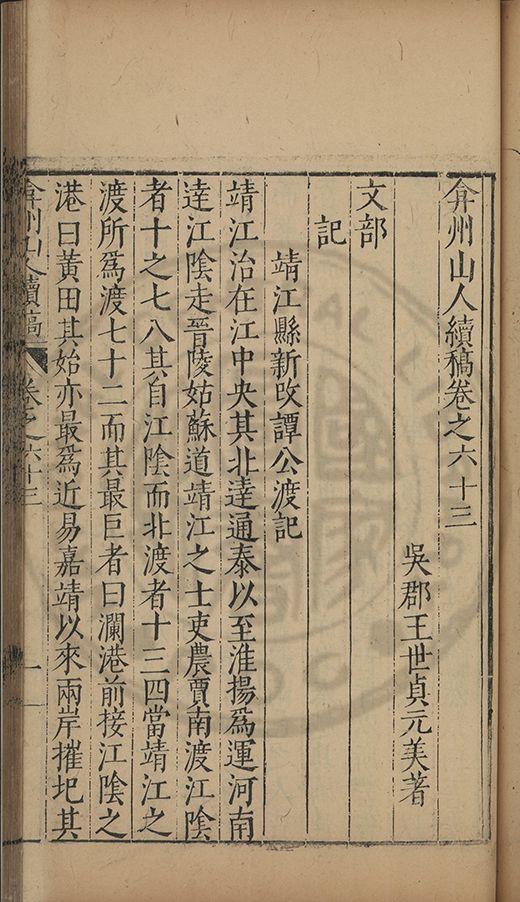 弇州山人續稿卷之六十三
吳郡王世貞元美著
文部
記
靖江縣新改譚公渡記
靖江治在江中央其北達通泰以至淮揚爲運河南
達江陰走晉陵姑蘇道靖江之士吏農賈南渡江陰
者十之七八其自江陰而北渡者十三四當靖江之
渡所爲渡七十二而其最巨者曰瀾港前接江陰之
港曰黃田其始亦最爲近易嘉靖以來兩岸摧圯其
弇州山人續稿 卷之六十三 一